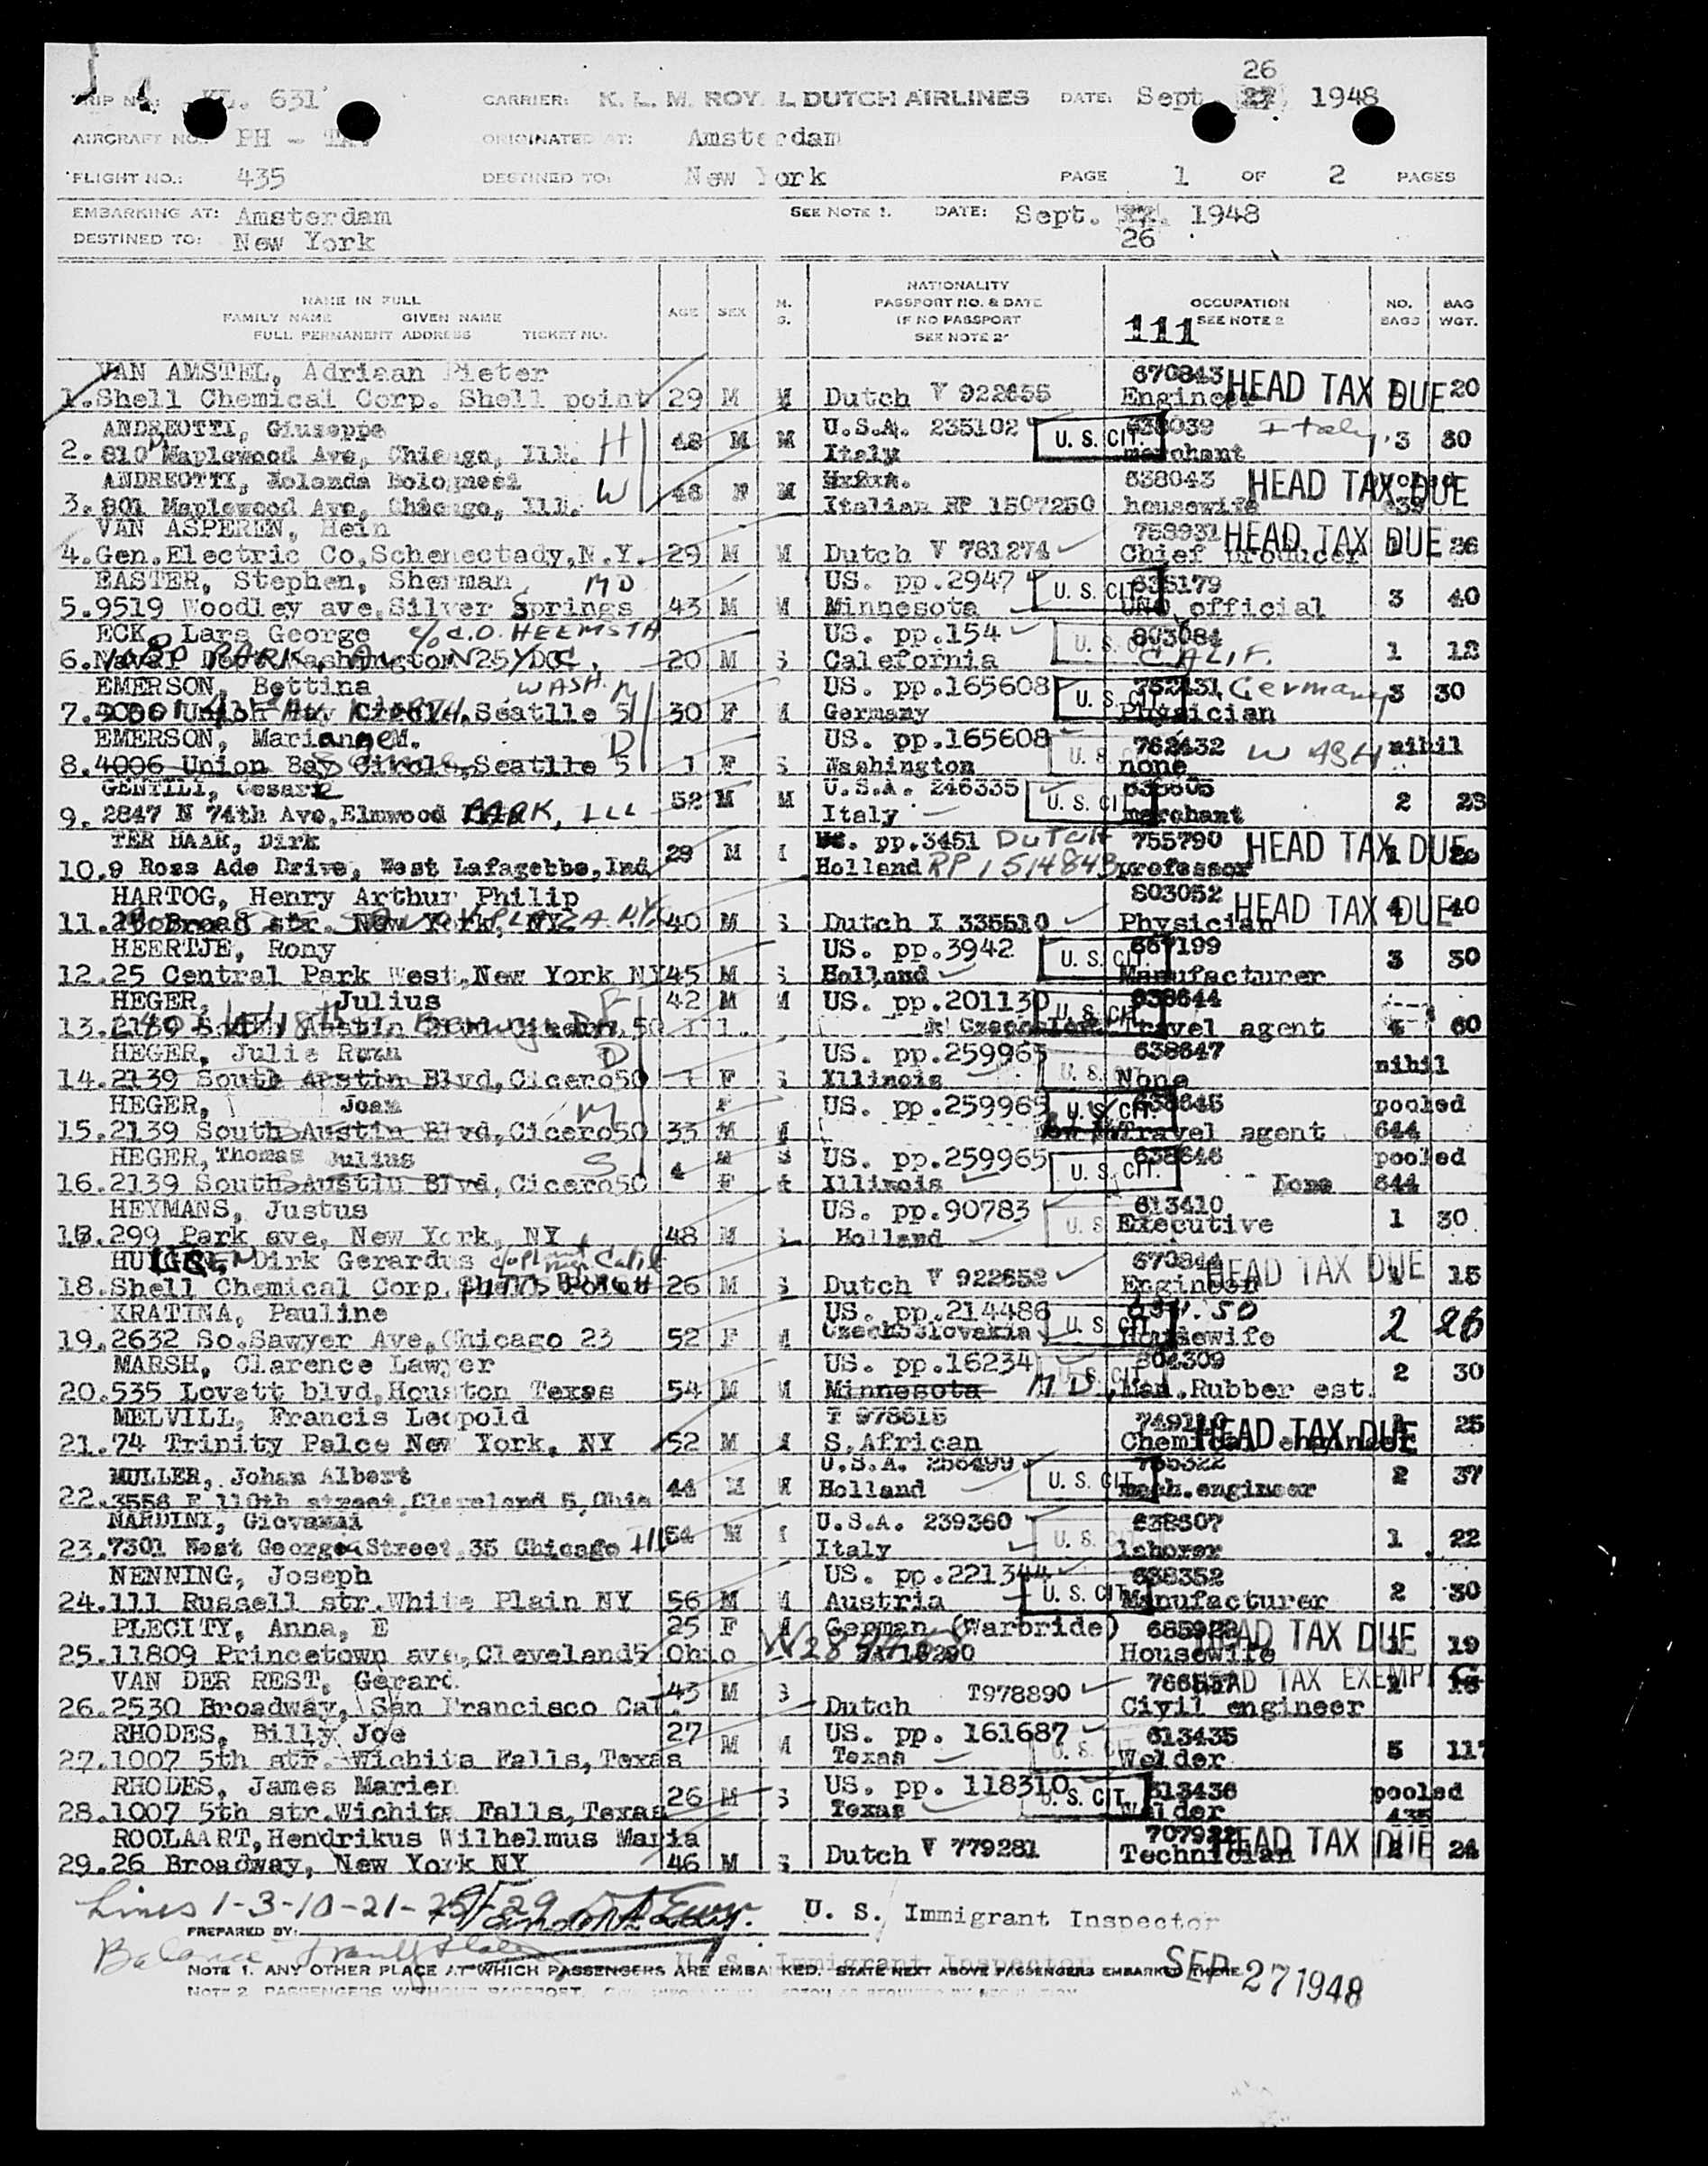 TRIP NO.: KL. 631 CARRIER: K. L. M. ROYAL DUTCH AIRLINES DATE: Sept. 26 1948
AIRCRAFT NO.: PH - ORIGINATED AT: Amsterdam
FLIGHT NO.: 435 DESTINED TO: New York PAGE 1 OF 2 PAGES
EMBARKING AT: Amsterdam SEE NOTE 1. DATE: Sept. 1948
DESTINED TO: New York 26
NAME IN FULL
FAMILY NAME GIVEN NAME
FULL PERMANENT ADDRESS TICKET NO.
AGE SEX M. S.
NATIONALITY
PASSPORT NO. & DATE
IF NO PASSPORT
SEE NOTE 2
OCCUPATION
SEE NOTE 2
111
NO. BAGS BAG WGT.
VAN AMSTEL, Adriaan Pieter 670843 HEAD TAX DUE
1. Shell Chemical Corp. Shell point 29 M M Dutch V 922655 Engineer 20
ANDREOTTI, Giuseppe H U.S.A. 235102 U. S. CIT. 638039 Italy
2. 810 Maplewood Ave, Chicago, Ill. 48 M M Italy merchant 3 60
ANDREOTTI, Iolanda Bolognesi W 638043 HEAD TAX DUE
3. 801 Maplewood Ave, Chicago, Ill. 46 F M Italian PP 1507250 housewife
VAN ASPEREN, Hein 758931 HEAD TAX DUE
4. Gen. Electric Co, Schenectady, N.Y. 29 M M Dutch V 781274 Chief producer 26
EASTER, Stephen, Sherman MD US. pp.2947 U. S. CIT. 635179
5. 9519 Woodley ave, Silver Springs 43 M M Minnesota UNO official 3 40
ECK, Lars George c/o C.O. HEEMSTRA US. pp.154 803084
6. 20 M S Calefornia CALIF. 1 12
EMERSON, Bettina WASH. M US. pp.165608 U. S. CIT. 762431 Germany
7. Seatlle 5 30 F M Germany Physician 3 30
EMERSON, Marianne M. D US. pp.165608 762432 WASH nihil
8. 4006 Union Bay Circle, Seatlle 5 1 F S Washington none
GENTILI, Cesare U.S.A. 246335 U. S. CIT
9. 2847 N 74th Ave, Elmwood PARK, ILL 52 M M Italy merchant 2 23
TER HAAR, Dirk pp.3451 DUTCH 755790 HEAD TAX DUE
10. 9 Ross Ade Drive, West Lafagette, Ind 29 M M Holland PP 1514843 professor
HARTOG, Henry Arthur Philip 803052 HEAD TAX DUE
11. Broad str. New York, NY 40 M S Dutch I 335510 Physician 40
HEERTJE, Rony US. pp.3942 U. S. CIT. 667199
12. 25 Central Park West, New York NY 45 M S Holland Manufacturer 3 30
HEGER, Julius F 42 M M US. pp.201130 U. S. CIT. 638644
13. 2139 South Austin Travel agent 60
HEGER, Julie Ruth D US. pp.259965 638647 nihil
14. 2139 South Austin Blvd, Cicero50 1 F S Illinois None
HEGER, Joan M F US. pp.259965 U. S. CIT. 638645 pooled
15. 2139 South Austin Blvd, Cicero50 33 M M Travel agent 644
HEGER, Thomas Julius S M S US. pp.259965 U. S. CIT. 638646 pooled
16. 2139 South Austin Blvd, Cicero50 4 Illinois None 644
HEYMANS, Justus US. pp.90783 613410
17. 299 Park ave, New York, NY 48 M S Holland Executive 1 30
Dirk Gerardus 670844 HEAD TAX DUE
18. Shell Chemical Corp. 26 M S Dutch V 922652 Engineer 15
KRATINA, Pauline US. pp.214486 U. S. CIT
19. 2632 So. Sawyer Ave, Chicago 23 52 F M Czechoslovakia Housewife 2 26
MARSH, Clarence Lawyer US. pp.16234 804309
20. 535 Lovett blvd, Houston Texas 54 M M Minnesota MD Man. Rubber est. 2 30
MELVILL, Francis Leopold T 978615 HEAD TAX DUE
21. 74 Trinity Palce New York, NY 52 M M S. African Chemical engineer 25
MULLER, Johan Albert U.S.A. 256499 U. S. CIT. 755322
22. 3558 E 110th street, Cleveland 5, Ohio 44 M M Holland mech. engineer 2 37
NARDINI, Giovanni U.S.A. 239360 638607
23. 7301 West George Street, 35 Chicago Ill 54 M M Italy laborer 1 22
NENNING, Joseph US. pp.221344 U. S. CIT. 638352
24. 111 Russell str. White Plain NY 56 M M Austria Manufacturer 2 30
PLECITY, Anna, E 25 F M German (Warbride) HEAD TAX DUE
25. 11809 Princetown ave, Cleveland5 Ohio Housewife 19
VAN DER REST, Gerard. HEAD TAX EXEMPT
26. 2530 Broadway, San Francisco Cal. 43 M S Dutch T978890 Civil engineer
RHODES, Billy Joe 27 US. pp. 161687 613435
27. 1007 5th str. Wichita Falls, Texas M M Texas Welder 5 117
RHODES, James Marien US. pp. 118310 U. S. CIT. 613436 pooled
28. 1007 5th str. Wichita Falls, Texas 26 M S Texas Welder 435
ROOLAART, Hendrikus Wilhelmus Maria HEAD TAX DUE
29. 26 Broadway, New York NY 46 M S Dutch V 779281 Technician 24
Lines 1-3-10-21-25-29 U. S. Immigrant Inspector
PREPARED BY:
Balance U. S. Immigrant Inspector SEP 27 1948
NOTE 1. ANY OTHER PLACE AT WHICH PASSENGERS ARE EMBARKED. STATE NEXT ABOVE PASSENGERS EMBARKED THERE.
NOTE 2. PASSENGERS WITHOUT PASSPORT.